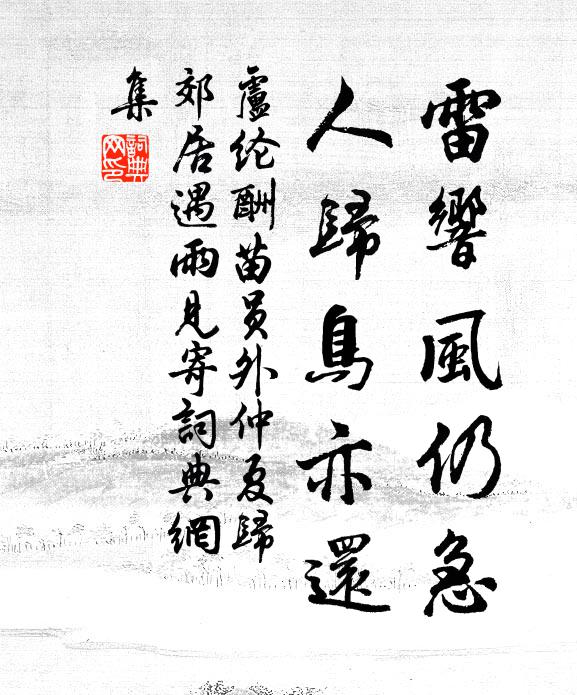 雷響風仍急
人歸鳥亦還
盧纶酬苗員外仲夏歸
郊居遇雨見寄詞典網
集
詞典
网印